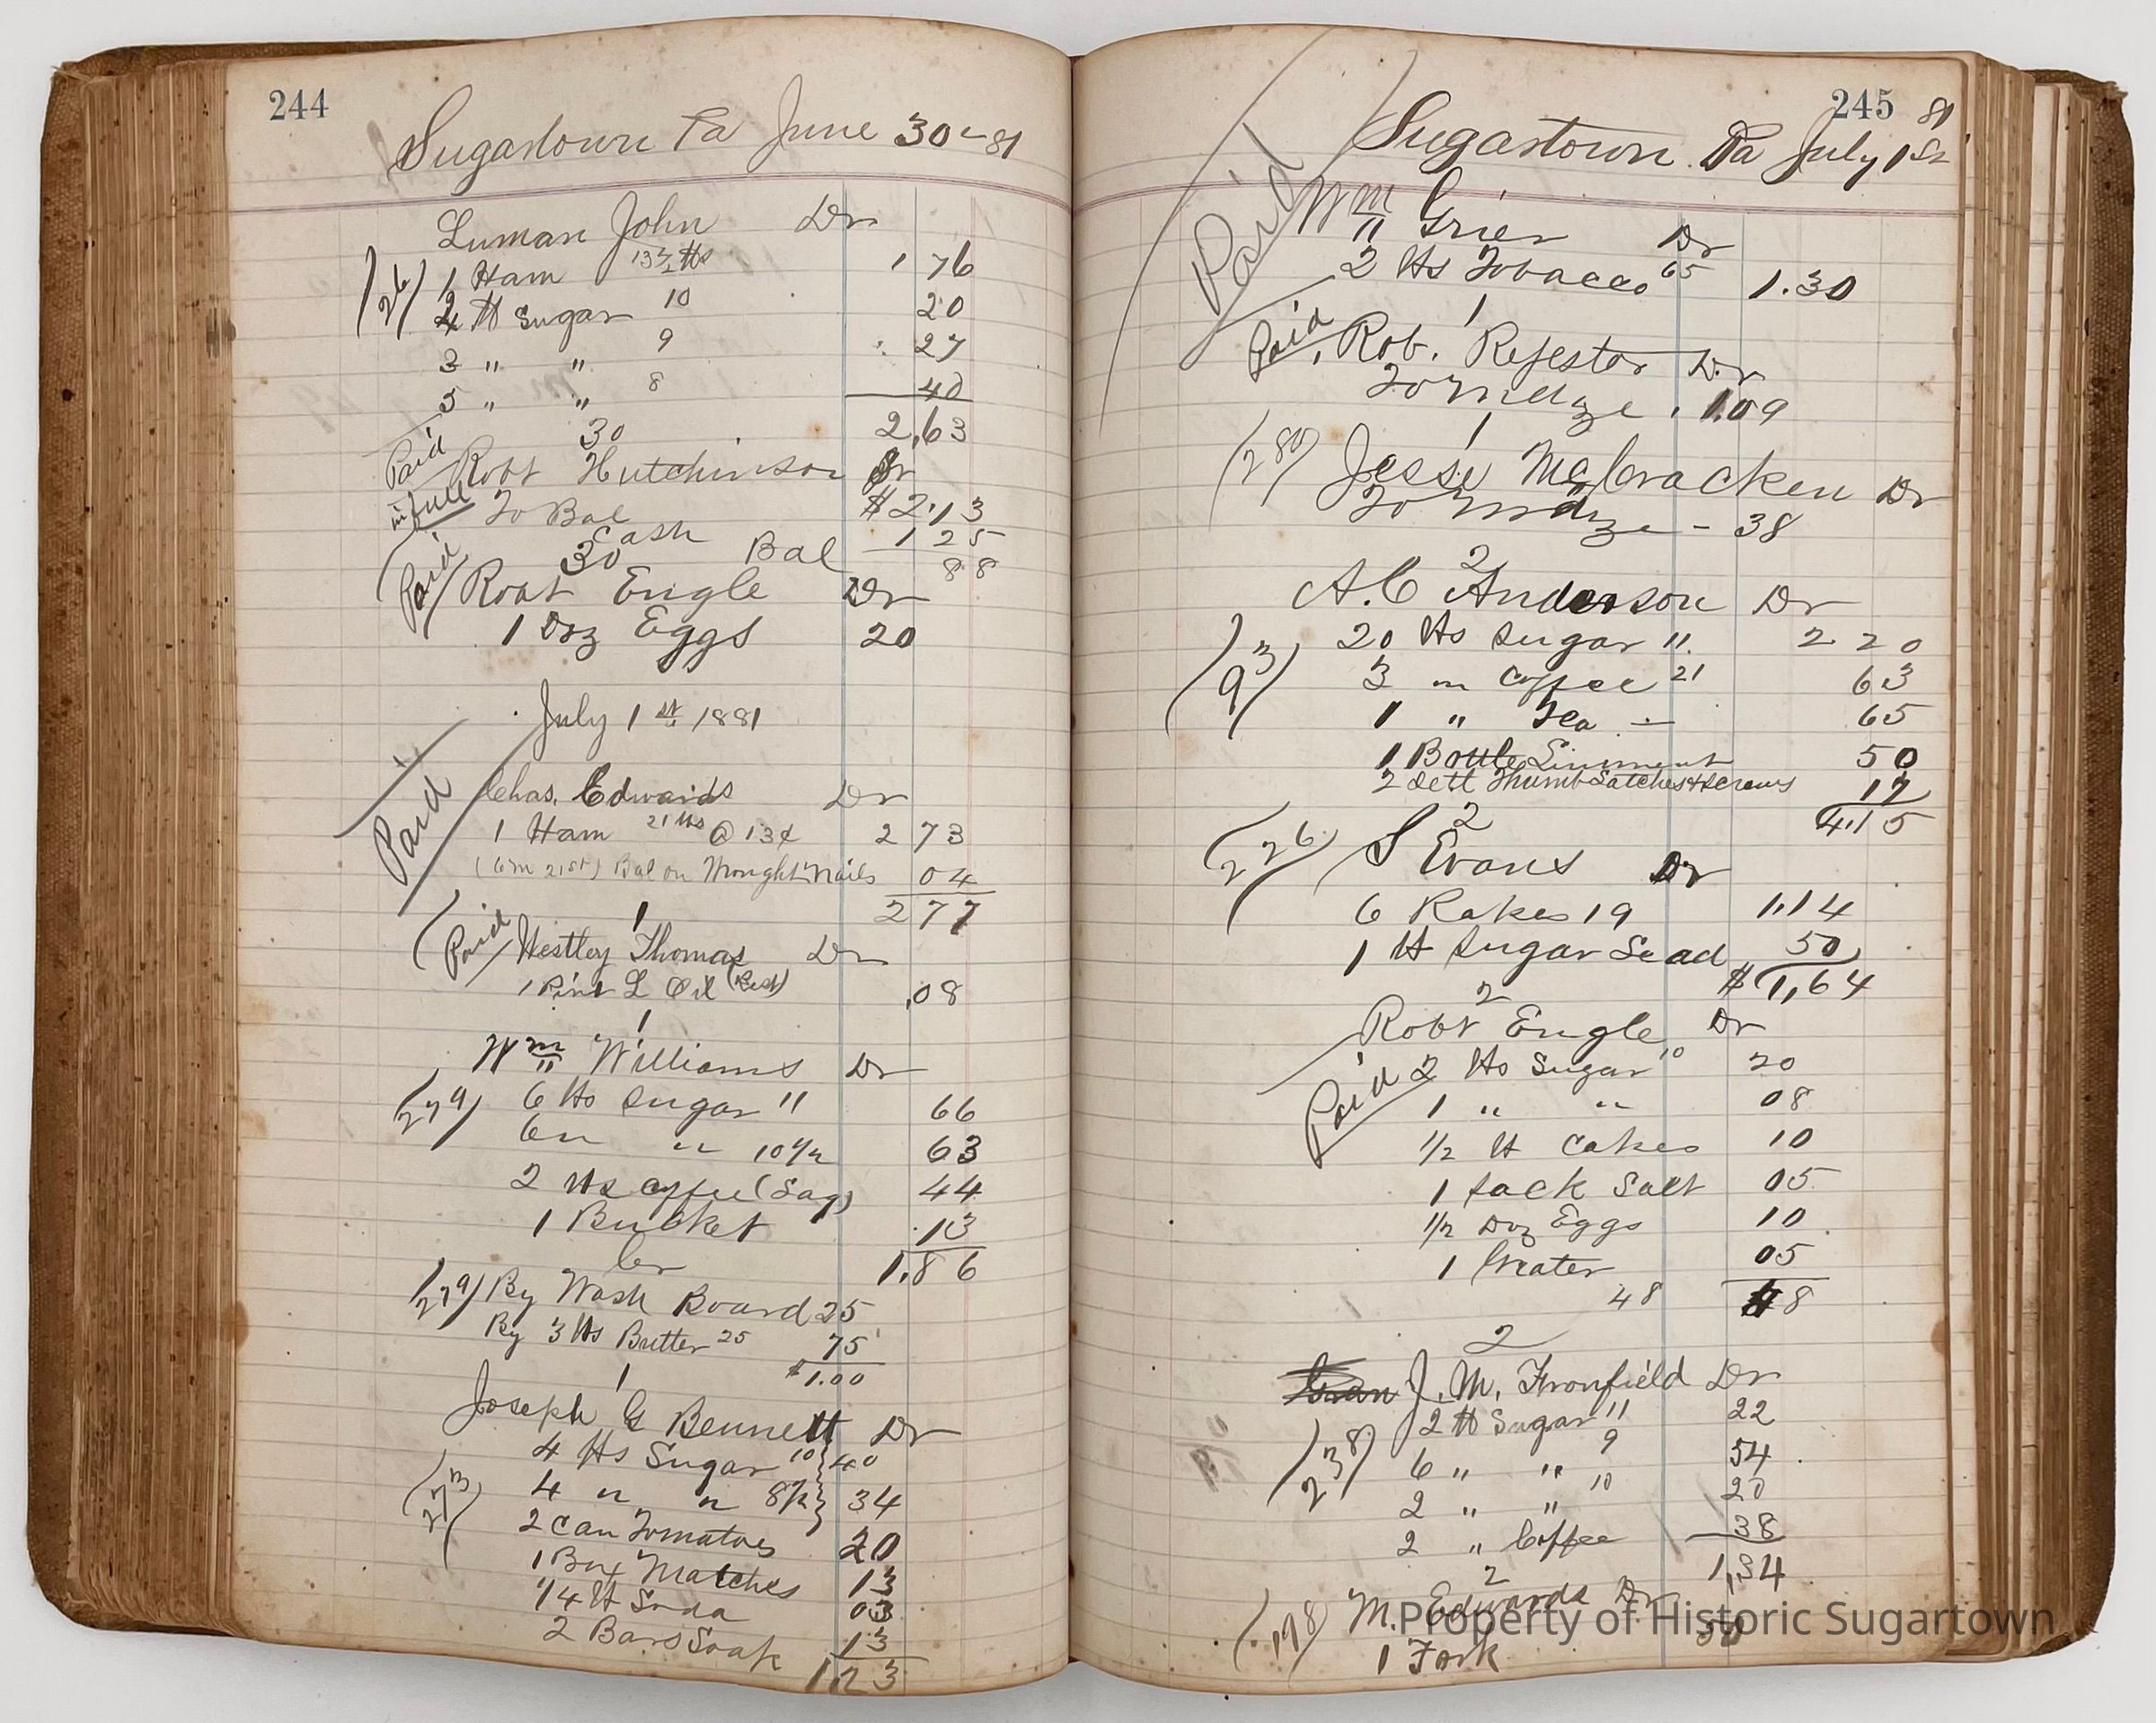 244
Sugartown Pa June 30-81
Luman John Dr
(26) 1 Ham 13½ lbs 1 76
2 lb Sugar 10 20
3 " " 9 27
5 " " 8 40
30 2,63
Paid in full
Robt Hutchinson Dr
To Bal $2.13
Cash 1 25
30 Bal 88
Paid Robt Engle Dr
1 Doz Eggs 20
July 1st 1881
Paid Chas. Edwards Dr
1 Ham 21 lbs @ 13¢ 2 73
21st) Bal on Wrought Nails 04
2 77
1
Paid Westley Thomas Dr
1 Pint L Oil (Rest) ,08
1
Wm Williams Dr
(279) 6 lbs Sugar 11 66
6 " " 10½ 63
2 lbs Coffee (Lag) 44
1 Bucket 13
Cr 1.86
(279) By Wash Board 25
By 3 lbs Butter 25 75
1 $1.00
Joseph G Bennett Dr
4 lbs Sugar 10 40
(273) 4 " " 8½ 34
2 can Tomatoes 20
1 Box Matches 13
1/4 lb Soda 03
2 Bars Soap 13
1 23
245
Sugartown Pa July 1st 81
Paid
Wm Grier Dr
2 lbs Tobacco 65 1.30
1
Paid Rob. Dr
To Mdze 1.09
1
(280) Jesse McCracken Dr
To Mdze - 38
2
A.C Anderson Dr
20 lbs Sugar 11 2 20
(93) 3 " Coffee 21 63
1 " Tea - 65
1 Bottle Liniment 50
2 Sett Thumb Latches & Screws 17
4.15
2
(226) S Evans Dr
6 Rakes 19 1,14
1 lb Sugar Lead 50
$1,64
2
Robt Engle Dr
Paid 2 lbs Sugar 10 20
1 " " 08
1/2 lb Cakes 10
1 Sack Salt 05
1/2 Doz Eggs 10
1 Grater 05
48 48
2
J. M. Fronfield Dr
2 lb Sugar 11 22
(238) 6 " " 9 54
2 " " 10 20
2 " Coffee 38
2 1,34
(198) M. Edwards Dr
1 Fork 50
Property of Historic Sugartown